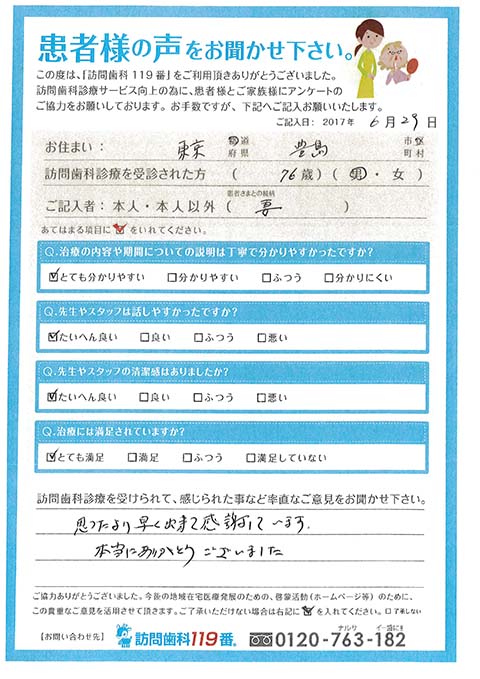 患者様の声をお聞かせ下さい。
この度は、『訪問歯科119番』をご利用頂きありがとうございました。
訪問歯科診療サービス向上の為に、患者様とご家族様にアンケートの
ご協力をお願いしております。お手数ですが、下記へご記入お願いいたします。
ご記入日: 2017年 6月29日
お住まい: 東京 都道府県 豊島 市区町村
訪問歯科診療を受診された方 ( 76歳)(男・女)
患者さまとの続柄
ご記入者: 本人・本人以外 ( 妻 )
あてはまる項目に☑をいれてください。
Q.治療の内容や期間についての説明は丁寧で分かりやすかったですか?
☑とても分かりやすい □分かりやすい □ふつう □分かりにくい
Q.先生やスタッフは話しやすかったですか?
☑たいへん良い □良い □ふつう □悪い
Q.先生やスタッフの清潔感はありましたか?
☑たいへん良い □良い □ふつう □悪い
Q.治療には満足されていますか?
☑とても満足 □満足 □ふつう □満足していない
訪問歯科診療を受けられて、感じられた事など率直なご意見をお聞かせ下さい。
思ったより早く出来て感謝しています。
本当にありがとうございました
ご協力ありがとうございました。今後の地域在宅医療発展のための、啓蒙活動(ホームページ等)のために、
この貴重なご意見を活用させて頂きます。ご了承いただけない場合は右記に☑を入れてください。□了承しない
ナルワ イー歯に
【お問い合わせ先】 訪問歯科119番。 0120-763-182